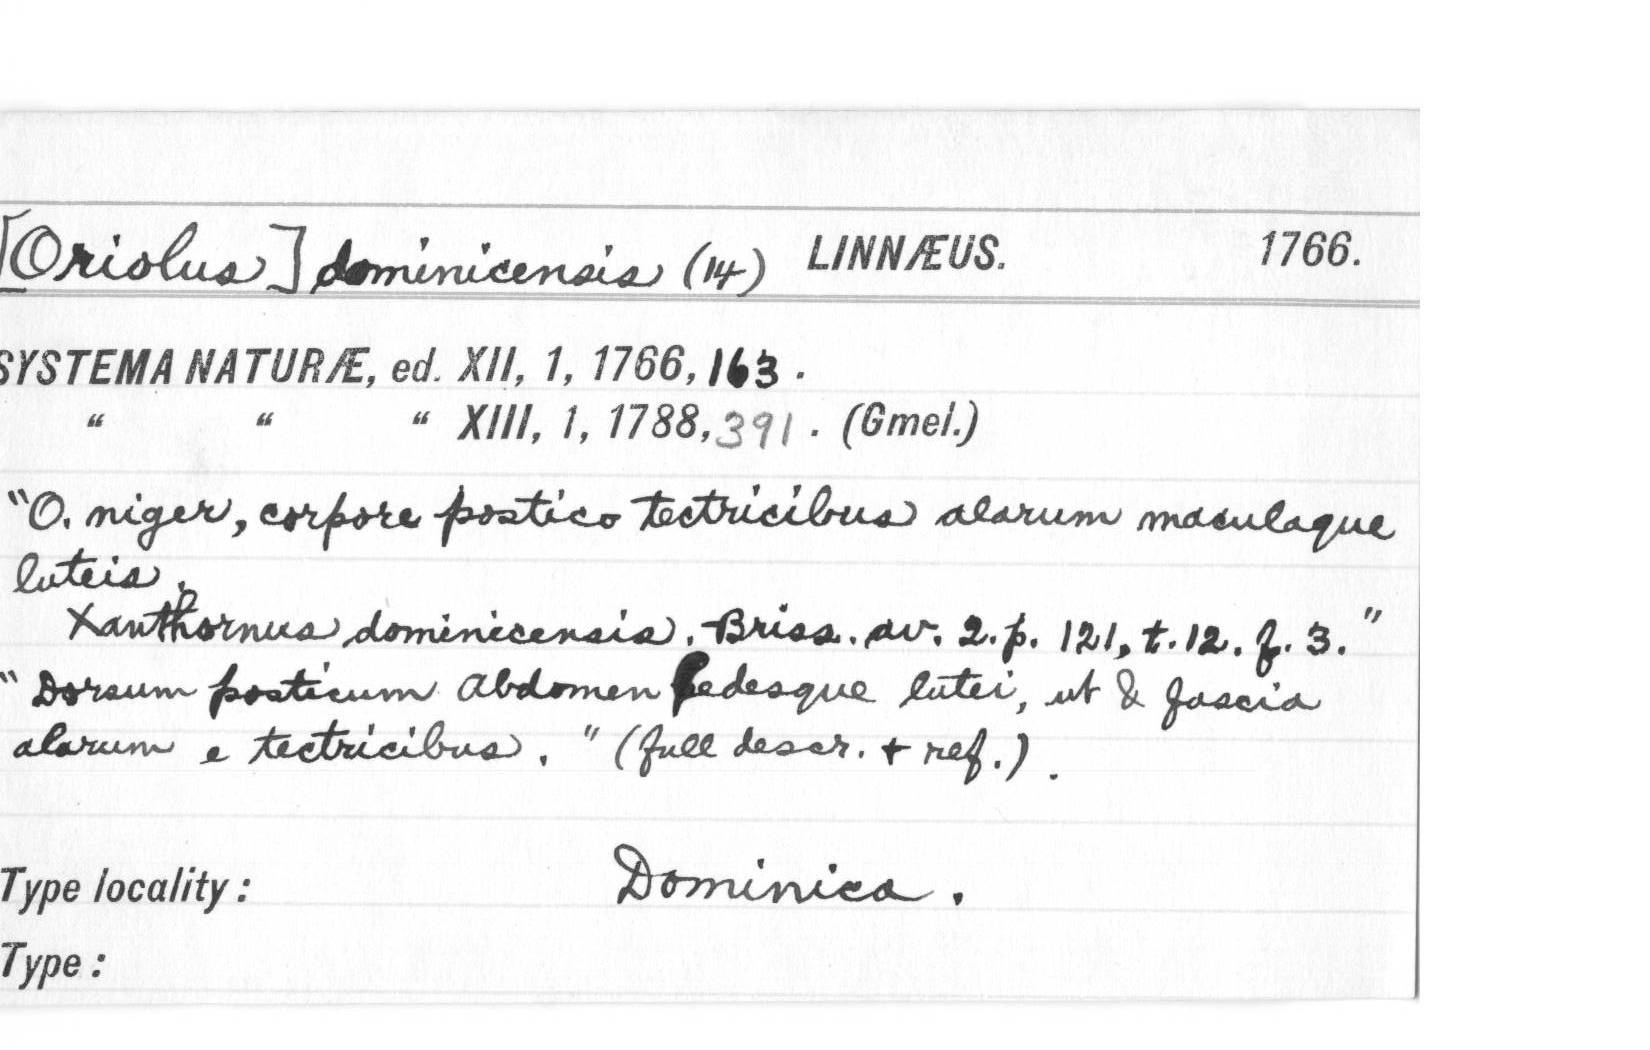 [Oriolus] dominicensis (14) LINNÆUS. 1766.
SYSTEMA NATURÆ, ed. XII, 1, 1766, 163.
“ “ “ XIII, 1, 1788, 391. (Gmel.)
"O. niger, corpore postico tectricibus alarum maculaque
luteis.
Xanthornus dominicensis. Briss. av. 2. p. 121, t. 12. f. 3."
"Dorsum posticum Abdomen pedesque lutei, ut & fascia
alarum e tectricibus." (full descr. + ref.).
Type locality: Dominica.
Type: